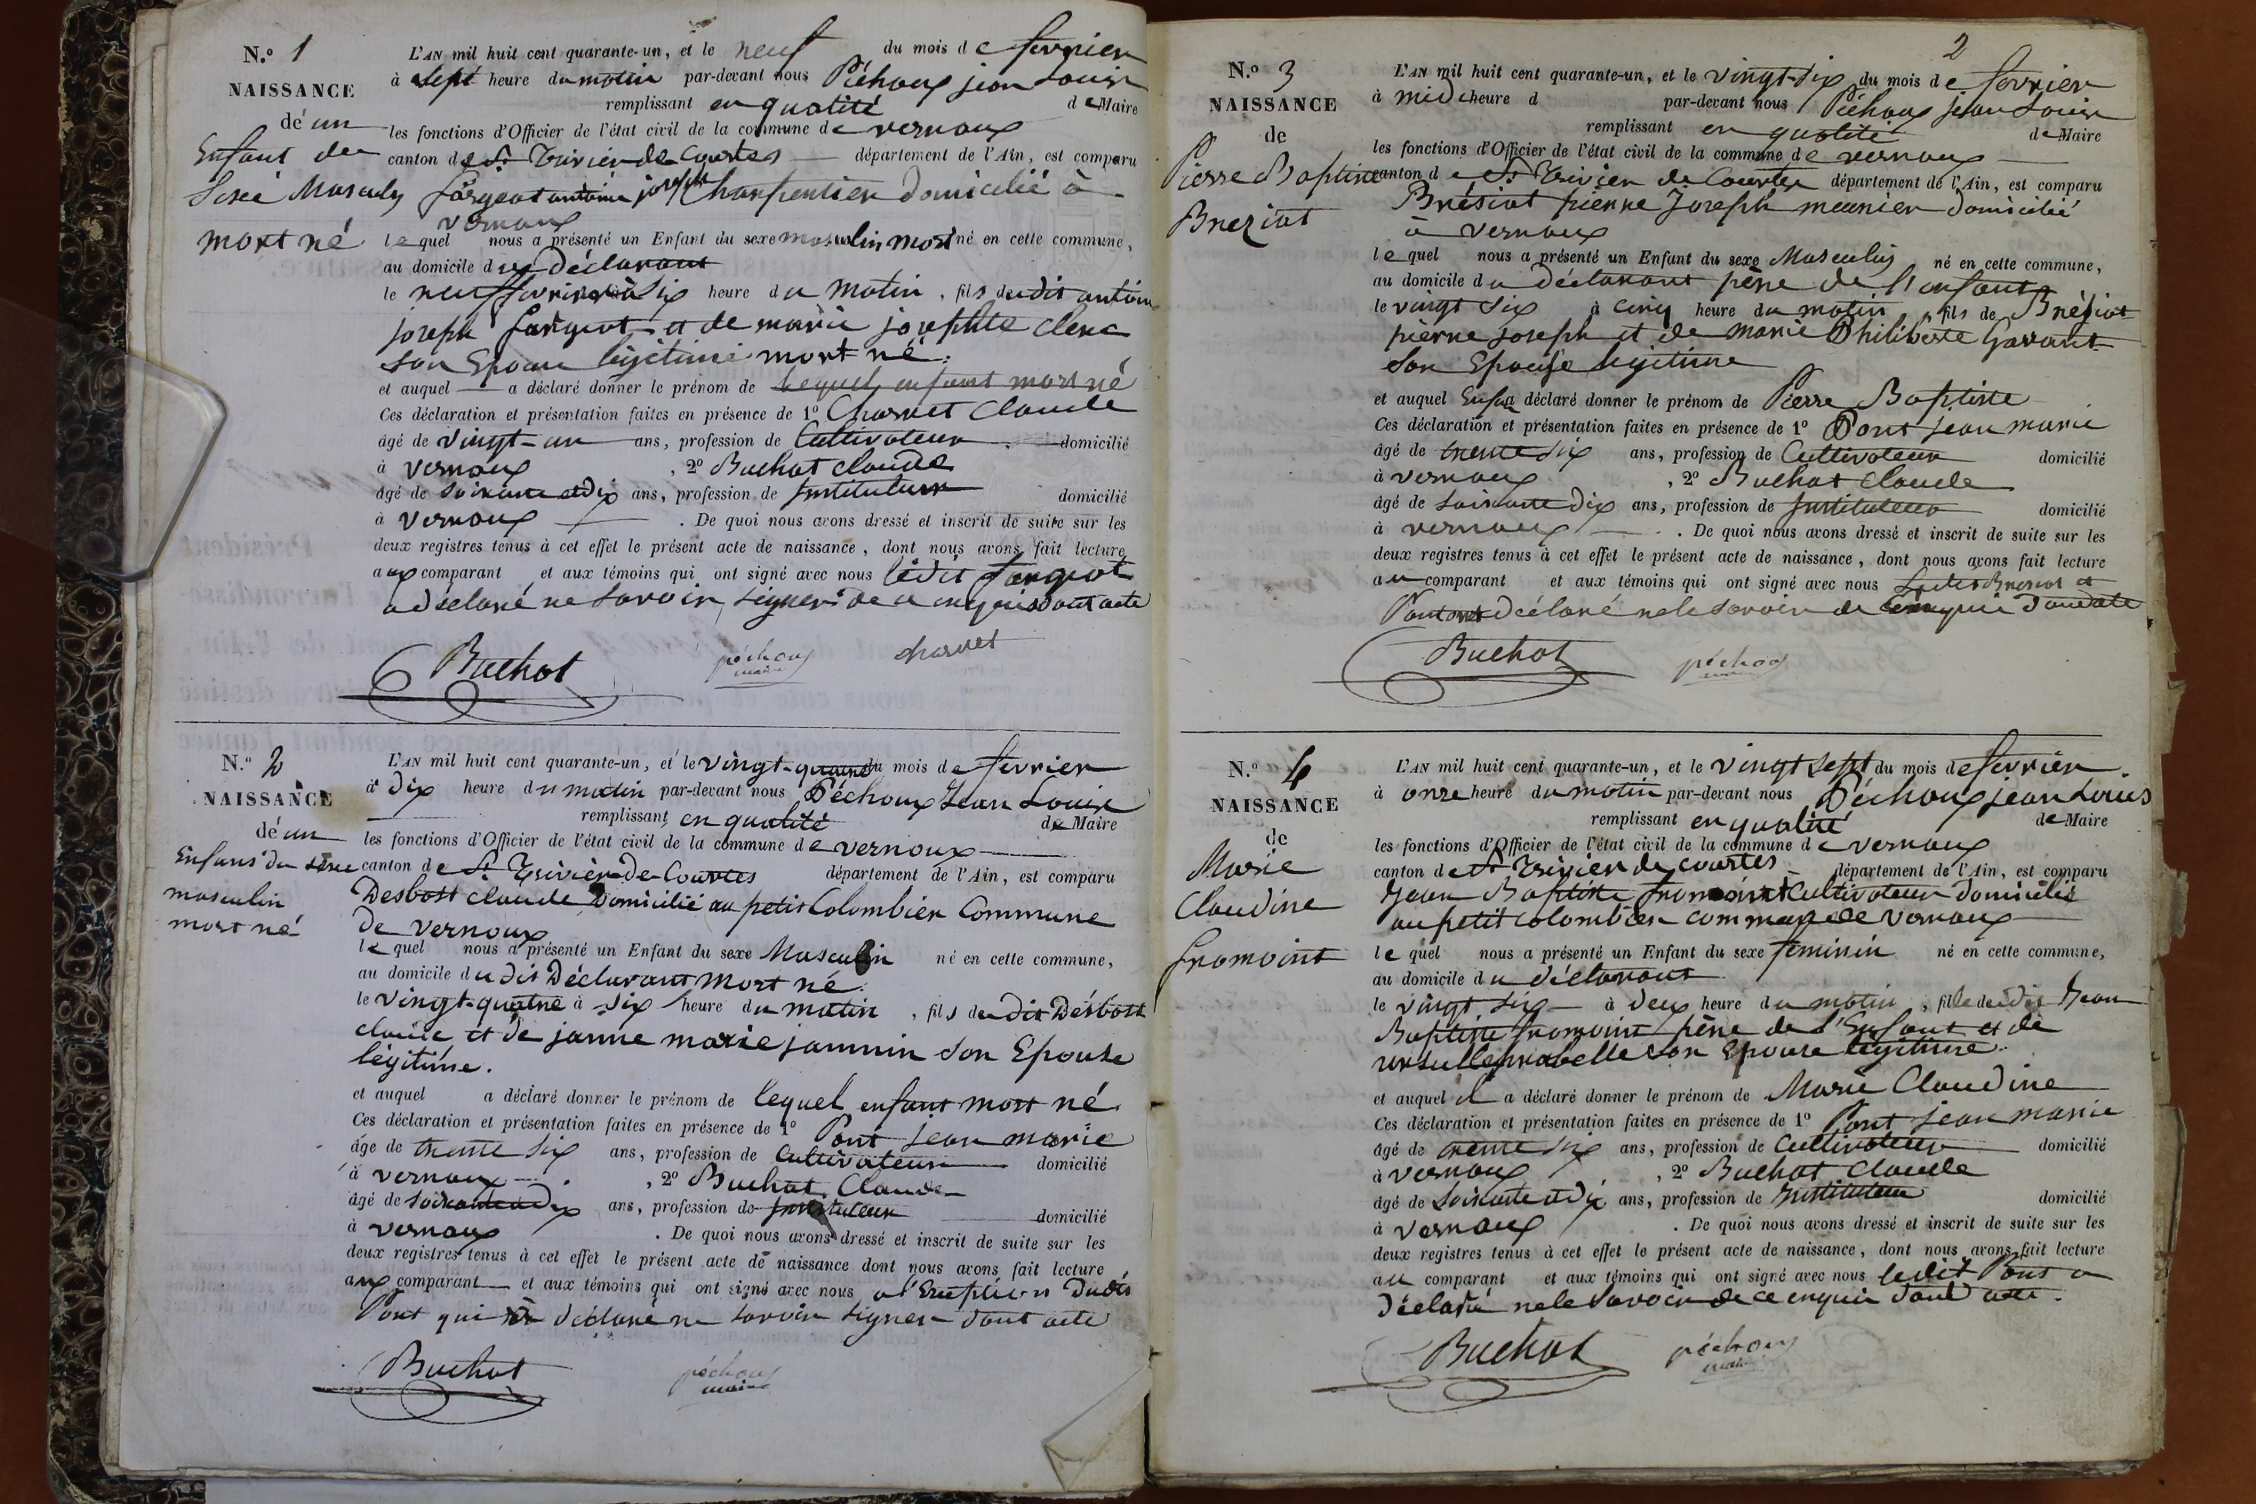 N.º 1
NAISSANCE
de un
Enfant de
Sexe Masculin
mort né
L'AN mil huit cent quarante-un, et le neuf du mois de fevrier
à sept heure du matin par-devant nous Péchoux jean Louis
remplissant en qualité de Maire
les fonctions d'Officier de l'état civil de la commune de vernoux
canton de St Trivier de Courtes département de l'Ain, est comparu
fargeot antoine joseph Charpentier domicilié à
vernoux
lequel nous a présenté un Enfant du sexe masculin mort né en cette commune,
au domicile du déclarant
le neuf fevrier à six heure du matin, fils dudit antoine
joseph fargeot et de marie josephte clerc
son Epouse légitime mort né.
et auquel a déclaré donner le prénom de lequel enfant mort né
Ces déclaration et présentation faites en présence de 1º Charvet Claude
âgé de vingt-un ans, profession de Cultivateur domicilié
à vernoux, 2º Buchot claude
âgé de soixante et dix ans, profession de Instituteur domicilié
à vernoux. De quoi nous avons dressé et inscrit de suite sur les
deux registres tenus à cet effet le présent acte de naissance, dont nous avons fait lecture
aux comparant et aux témoins qui ont signé avec nous ledit fargeot
a déclaré ne savoir signer de ce enquis dont acte
Buchot péchoux maire charvet
N.º 2
NAISSANCE
de un
Enfant du sexe
masculin
mort né
L'AN mil huit cent quarante-un, et le vingt-quatre du mois de fevrier
à dix heure du matin par-devant nous Péchoux Jean Louis
remplissant en qualité de Maire
les fonctions d'Officier de l'état civil de la commune de vernoux
canton de St Trivier de Courtes département de l'Ain, est comparu
Desbost claude Domicilié au petit Colombier Commune
de vernoux
lequel nous a présenté un Enfant du sexe Masculin né en cette commune,
au domicile du dit Déclarant mort né.
le vingt-quatre à six heure du matin, fils du dit Desbost
claude et de janne marie jannin son Epouse
légitime.
et auquel a déclaré donner le prénom de lequel enfant mort né
Ces déclaration et présentation faites en présence de 1º Pont jean marie
âgé de trente six ans, profession de Cultivateur domicilié
à vernoux, 2º Buchot Claude
âgé de soixante dix ans, profession de Instituteur domicilié
à vernoux. De quoi nous avons dressé et inscrit de suite sur les
deux registres tenus à cet effet le présent acte de naissance dont nous avons fait lecture
aux comparant et aux témoins qui ont signé avec nous a l'Exception dudit
Pont qui a déclaré ne savoir signer dont acte
Buchot péchoux maire
2
N.º 3
NAISSANCE
de
Pierre Baptiste
Breziat
L'AN mil huit cent quarante-un, et le vingt-six du mois de fevrier
à midi heure d par-devant nous Péchoux jean Louis
remplissant en qualité de Maire
les fonctions d'Officier de l'état civil de la commune de vernoux
canton de St Trivier de Courtes département de l'Ain, est comparu
Brésiat pierre Joseph meunier domicilié
à vernoux
lequel nous a présenté un Enfant du sexe Masculin né en cette commune,
au domicile du déclarant père de l'enfant
le vingt six à cinq heure du matin, fils de Bréziat
pierre Joseph et de marie Philiberte Gavant
son Epouse legitime
et auquel Enfant a déclaré donner le prénom de Pierre Baptiste
Ces déclaration et présentation faites en présence de 1º Pont jean marie
âgé de trente six ans, profession de Cultivateur domicilié
à vernoux, 2º Buchot Claude
âgé de soixante dix ans, profession de Instituteur domicilié
à vernoux. De quoi nous avons dressé et inscrit de suite sur les
deux registres tenus à cet effet le présent acte de naissance, dont nous avons fait lecture
au comparant et aux témoins qui ont signé avec nous Ledit Bresiat et
Pont ont déclaré ne le savoir de ce enquis dont acte
Buchot péchoux
N.º 4
NAISSANCE
de
Marie
Claudine
fromoint
L'AN mil huit cent quarante-un, et le vingt sept du mois de fevrier.
à onze heure du matin par-devant nous Péchoux jean Louis
remplissant en qualité de Maire
les fonctions d'Officier de l'état civil de la commune de vernoux
canton de St Trivier de courtes département de l'Ain, est comparu
Jean Baptiste fromoint Cultivateur domicilié
au petit colombier commune de vernoux
lequel nous a présenté un Enfant du sexe feminin né en cette commune,
au domicile du déclarant
le vingt six à deux heure du matin, fille dudit Jean
Baptiste fromoint père de l'Enfant et de
son Epouse légitime.
et auquel il a déclaré donner le prénom de Marie Claudine
Ces déclaration et présentation faites en présence de 1º Pont jean marie
âgé de trente six ans, profession de Cultivateur domicilié
à vernoux, 2º Buchot Claude
âgé de soixante et dix ans, profession de Instituteur domicilié
à vernoux. De quoi nous avons dressé et inscrit de suite sur les
deux registres tenus à cet effet le présent acte de naissance, dont nous avons fait lecture
au comparant et aux témoins qui ont signé avec nous ledit Pont a
déclaré ne le savoir de ce enquis dont acte.
Buchot péchoux maire